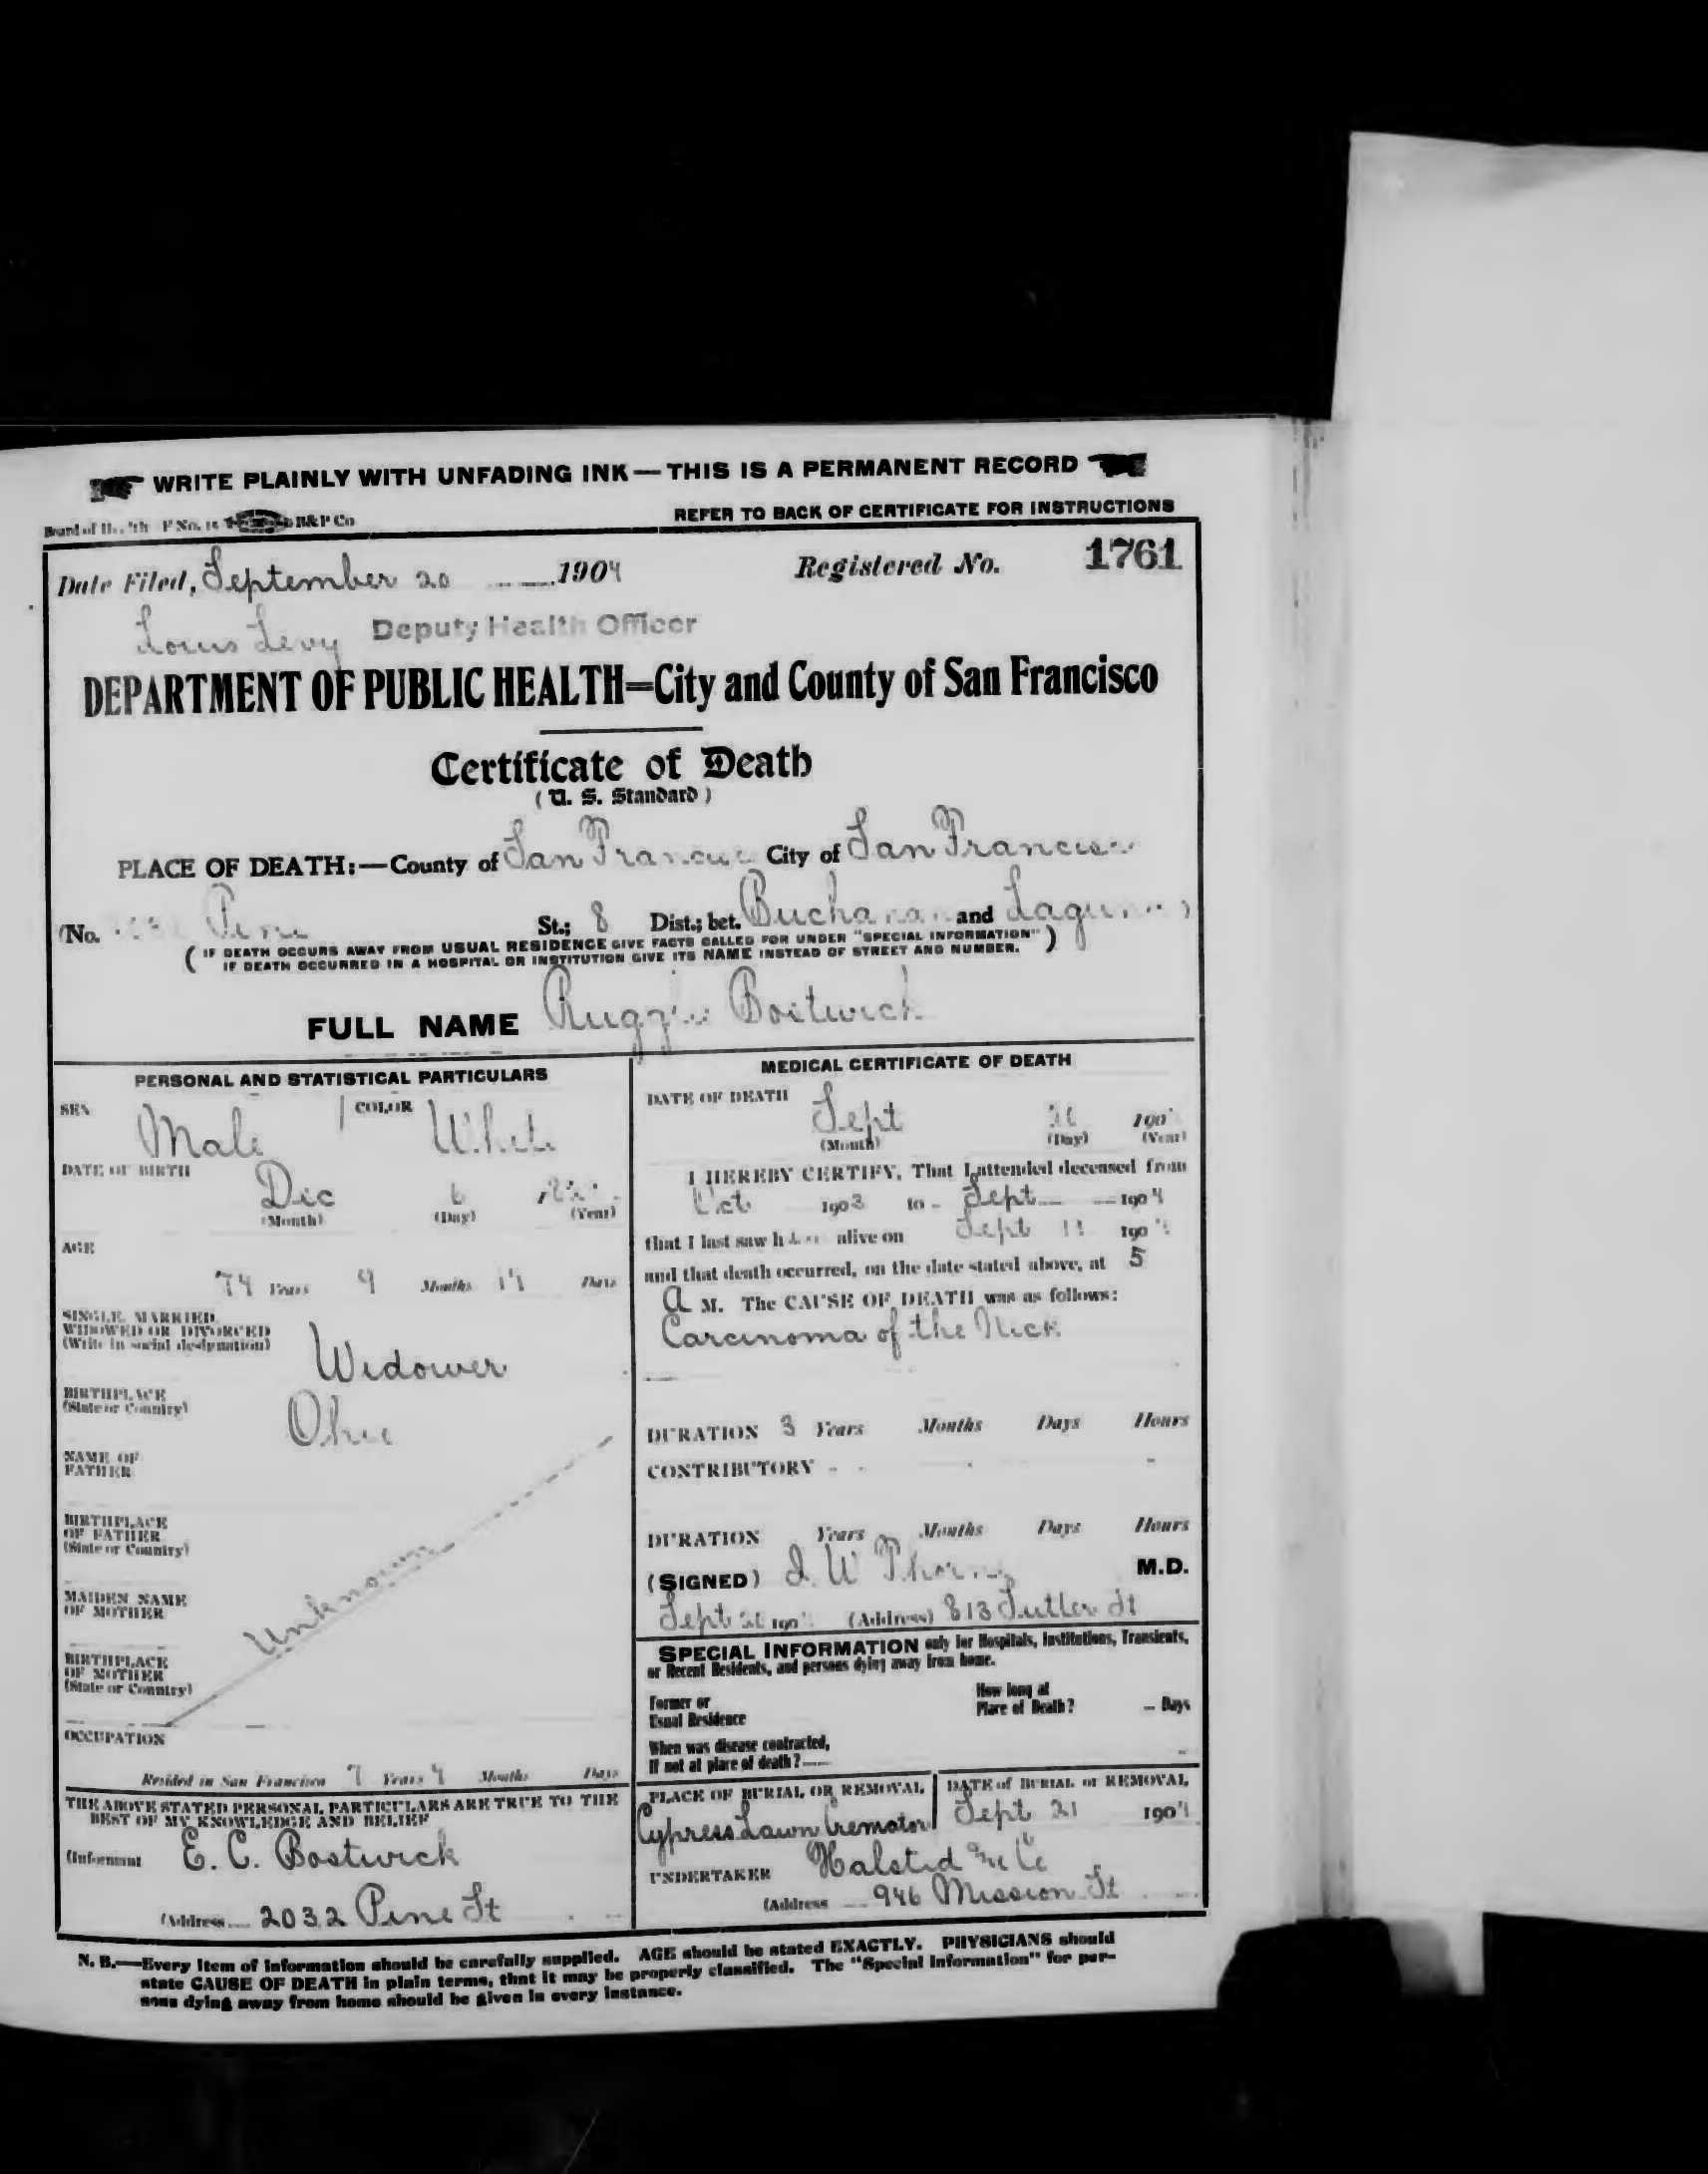 WRITE PLAINLY WITH UNFADING INK — THIS IS A PERMANENT RECORD
Board of Health F No. 15 B&P Co
REFER TO BACK OF CERTIFICATE FOR INSTRUCTIONS
Date Filed, September 20 1904 Registered No. 1761
Louis Levy Deputy Health Officer
DEPARTMENT OF PUBLIC HEALTH=City and County of San Francisco
Certificate of Death
(U. S. Standard)
PLACE OF DEATH:—County of San Francisco City of San Francisco
(No. Pine St.; 8 Dist.; bet. Buchanan and Laguna)
(IF DEATH OCCURS AWAY FROM USUAL RESIDENCE GIVE FACTS CALLED FOR UNDER "SPECIAL INFORMATION"
IF DEATH OCCURRED IN A HOSPITAL OR INSTITUTION GIVE ITS NAME INSTEAD OF STREET AND NUMBER.)
FULL NAME Bostwick
PERSONAL AND STATISTICAL PARTICULARS
SEX Male COLOR White
DATE OF BIRTH Dec 6
(Month) (Day) (Year)
AGE
74 Years 9 Months 14 Days
SINGLE, MARRIED,
WIDOWED OR DIVORCED
(Write in social designation)
Widower
BIRTHPLACE
(State or Country)
Ohio
NAME OF
FATHER
BIRTHPLACE
OF FATHER
(State or Country)
MAIDEN NAME
OF MOTHER
Unknown
BIRTHPLACE
OF MOTHER
(State or Country)
OCCUPATION
Resided in San Francisco 7 Years 4 Months Days
THE ABOVE STATED PERSONAL PARTICULARS ARE TRUE TO THE
BEST OF MY KNOWLEDGE AND BELIEF
(Informant E. C. Bostwick
(Address 2032 Pine St
MEDICAL CERTIFICATE OF DEATH
DATE OF DEATH
Sept 20 190
(Month) (Day) (Year)
I HEREBY CERTIFY, That I attended deceased from
Oct 1903 to Sept 1904
that I last saw h alive on Sept 11 1904
and that death occurred, on the date stated above, at 5
A M. The CAUSE OF DEATH was as follows:
Carcinoma of the Neck
DURATION 3 Years Months Days Hours
CONTRIBUTORY
DURATION Years Months Days Hours
(SIGNED) W Thorne M.D.
Sept 20 190 (Address) 813 Sutter St
SPECIAL INFORMATION only for Hospitals, Institutions, Transients,
or Recent Residents, and persons dying away from home.
Former or
Usual Residence
How long at
Place of Death? Days
When was disease contracted,
If not at place of death?
PLACE OF BURIAL OR REMOVAL
Cypress Lawn Cremator
DATE of BURIAL or REMOVAL
Sept 21 1904
UNDERTAKER Halsted & Co
(Address 946 Mission St
N. B.—Every item of information should be carefully supplied. AGE should be stated EXACTLY. PHYSICIANS should
state CAUSE OF DEATH in plain terms, that it may be properly classified. The "Special Information" for per-
sons dying away from home should be given in every instance.